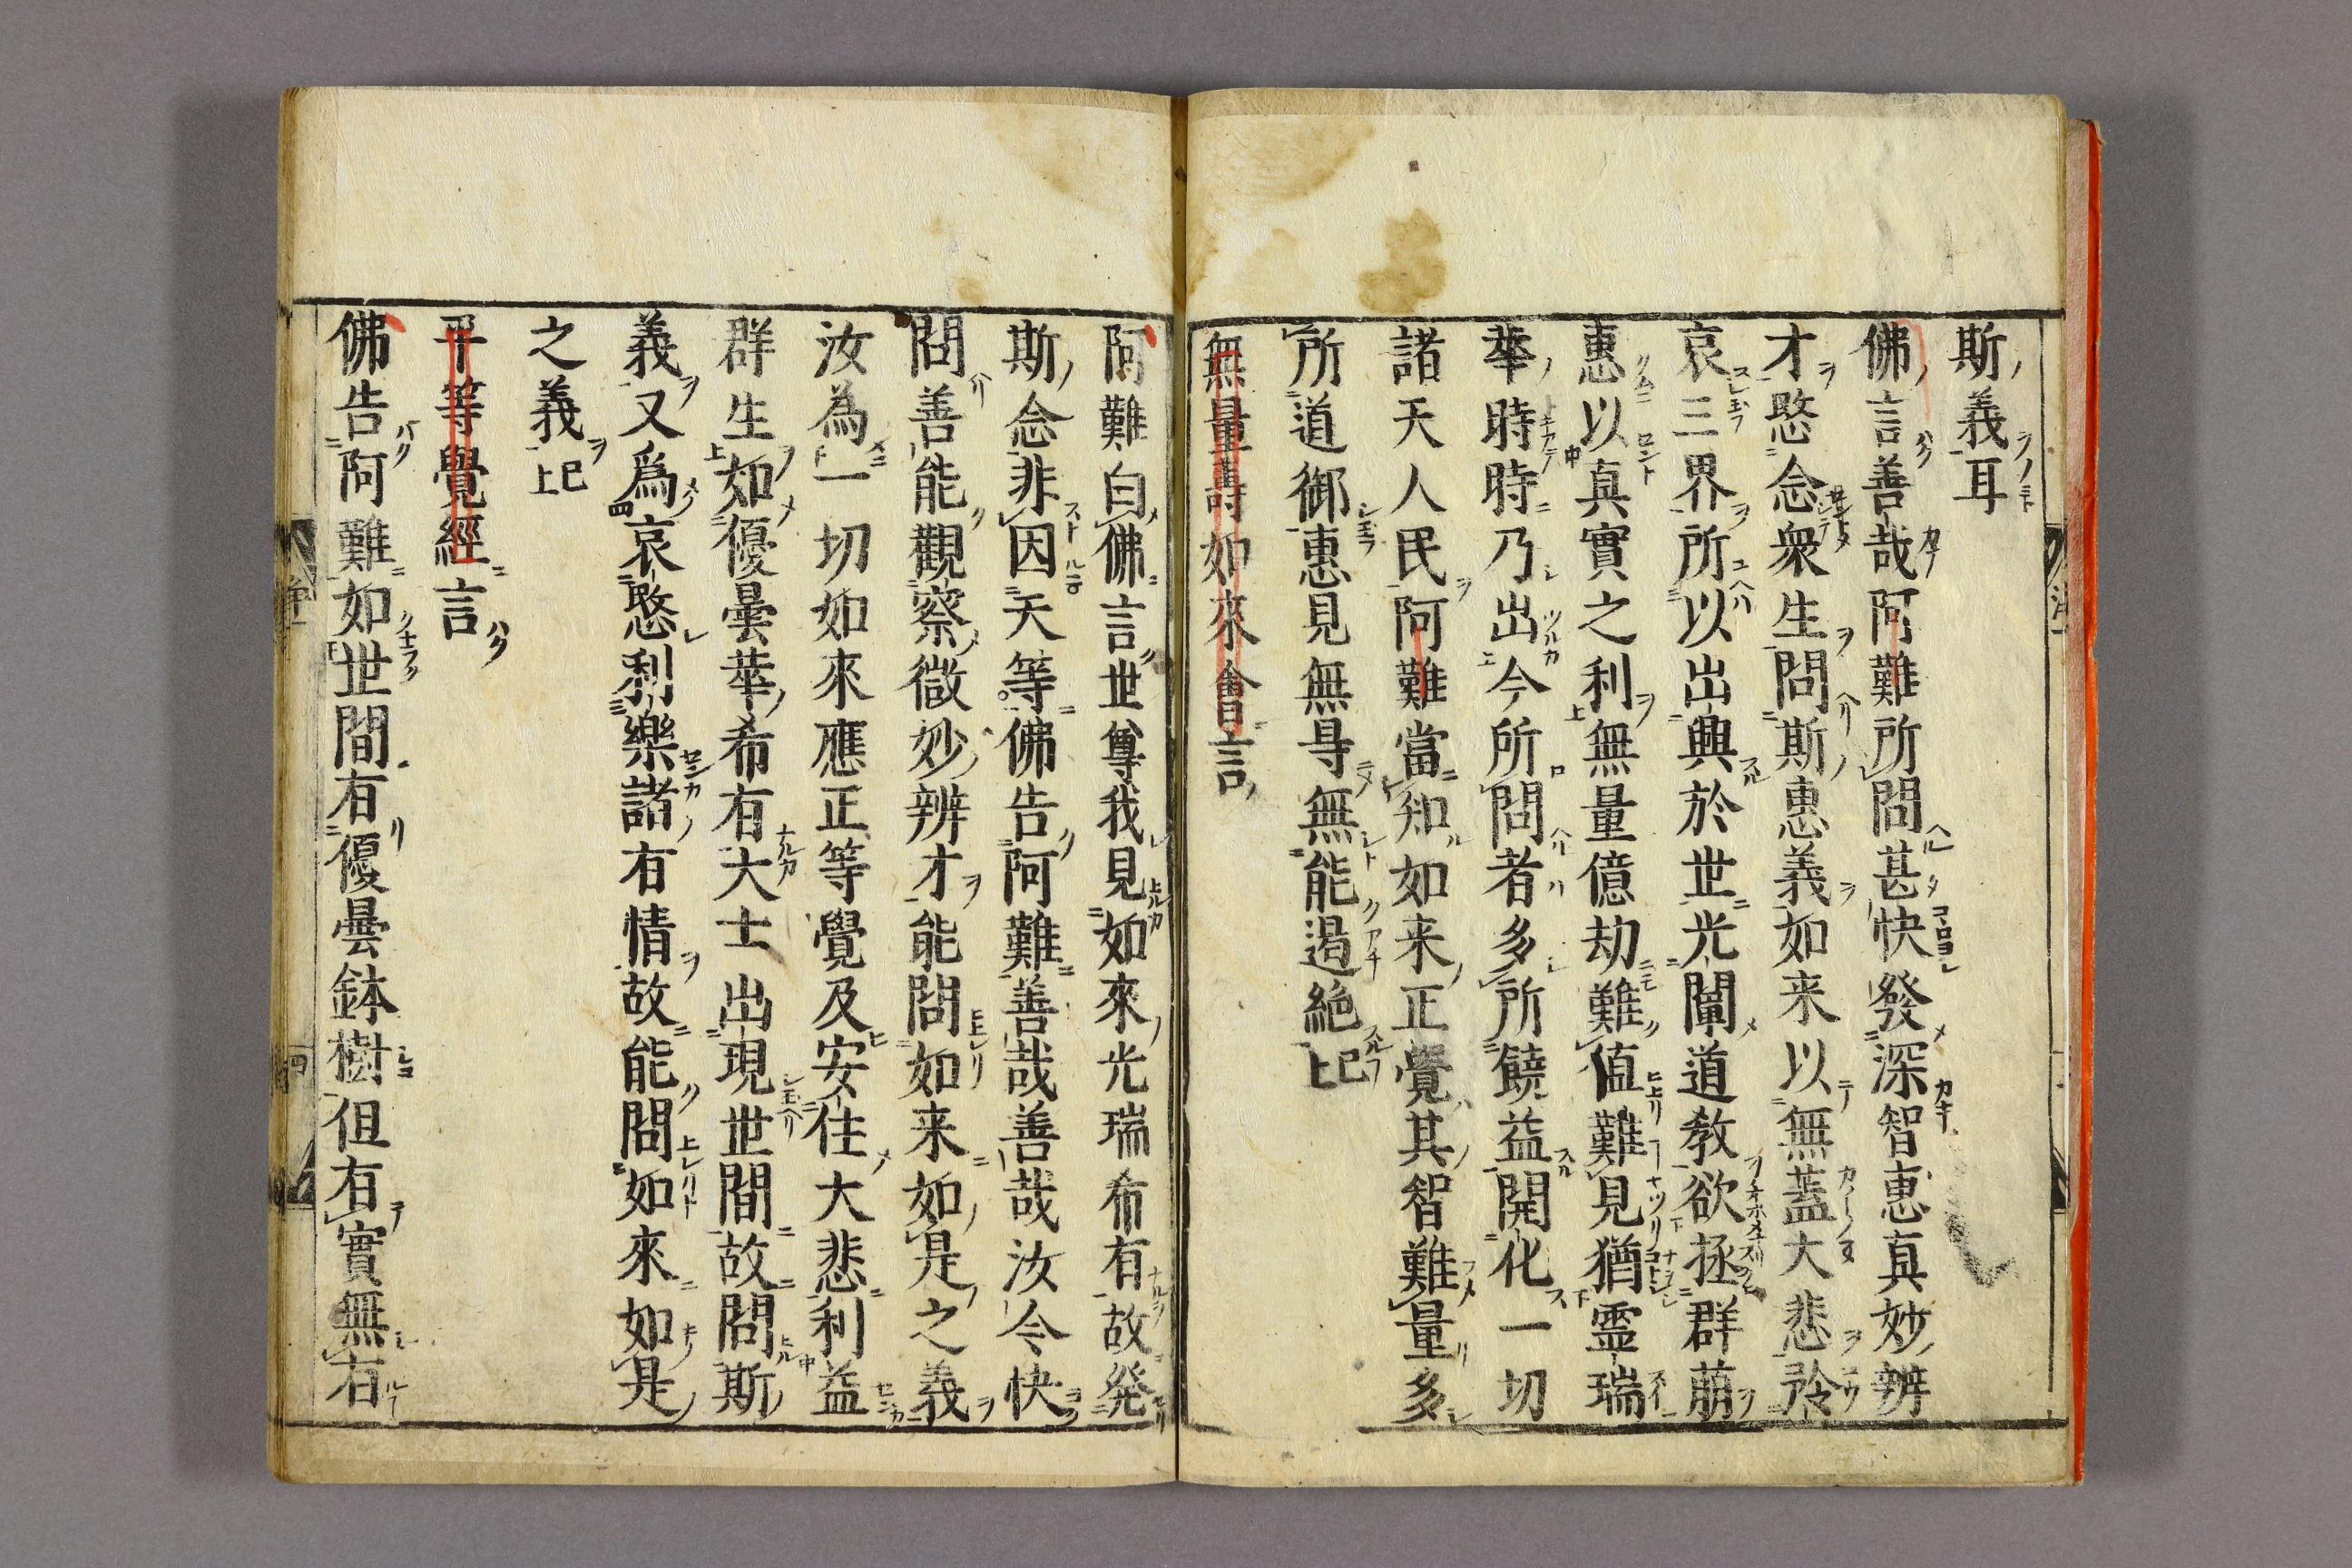 斯義耳
佛言善哉阿難所問甚快發深智惠真妙辨
才愍念衆生問斯惠義如来以無蓋大悲矜
哀三界所以出興於世光闡道教欲拯群萠
惠以真實之利無量億劫難值難見猶霊瑞
華時時乃出今所問者多所饒益開化一切
諸天人民阿難當知如来正覺其智難量多
所道御惠見無㝵無能遏絶已上
無量壽如來會言
阿難白佛言世尊我見如來光瑞希有故発
斯念非因天等佛告阿難善哉善哉汝今快
問善能觀察微妙辨才能問如来如是之義
汝為一切如來應正等覺及安住大悲利益
群生如優曇華希有大士出現世間故問斯
義又爲哀愍利樂諸有情故能問如來如是
之義已上
平等覺經言
佛告阿難如世間有優曇鉢樹但有實無有